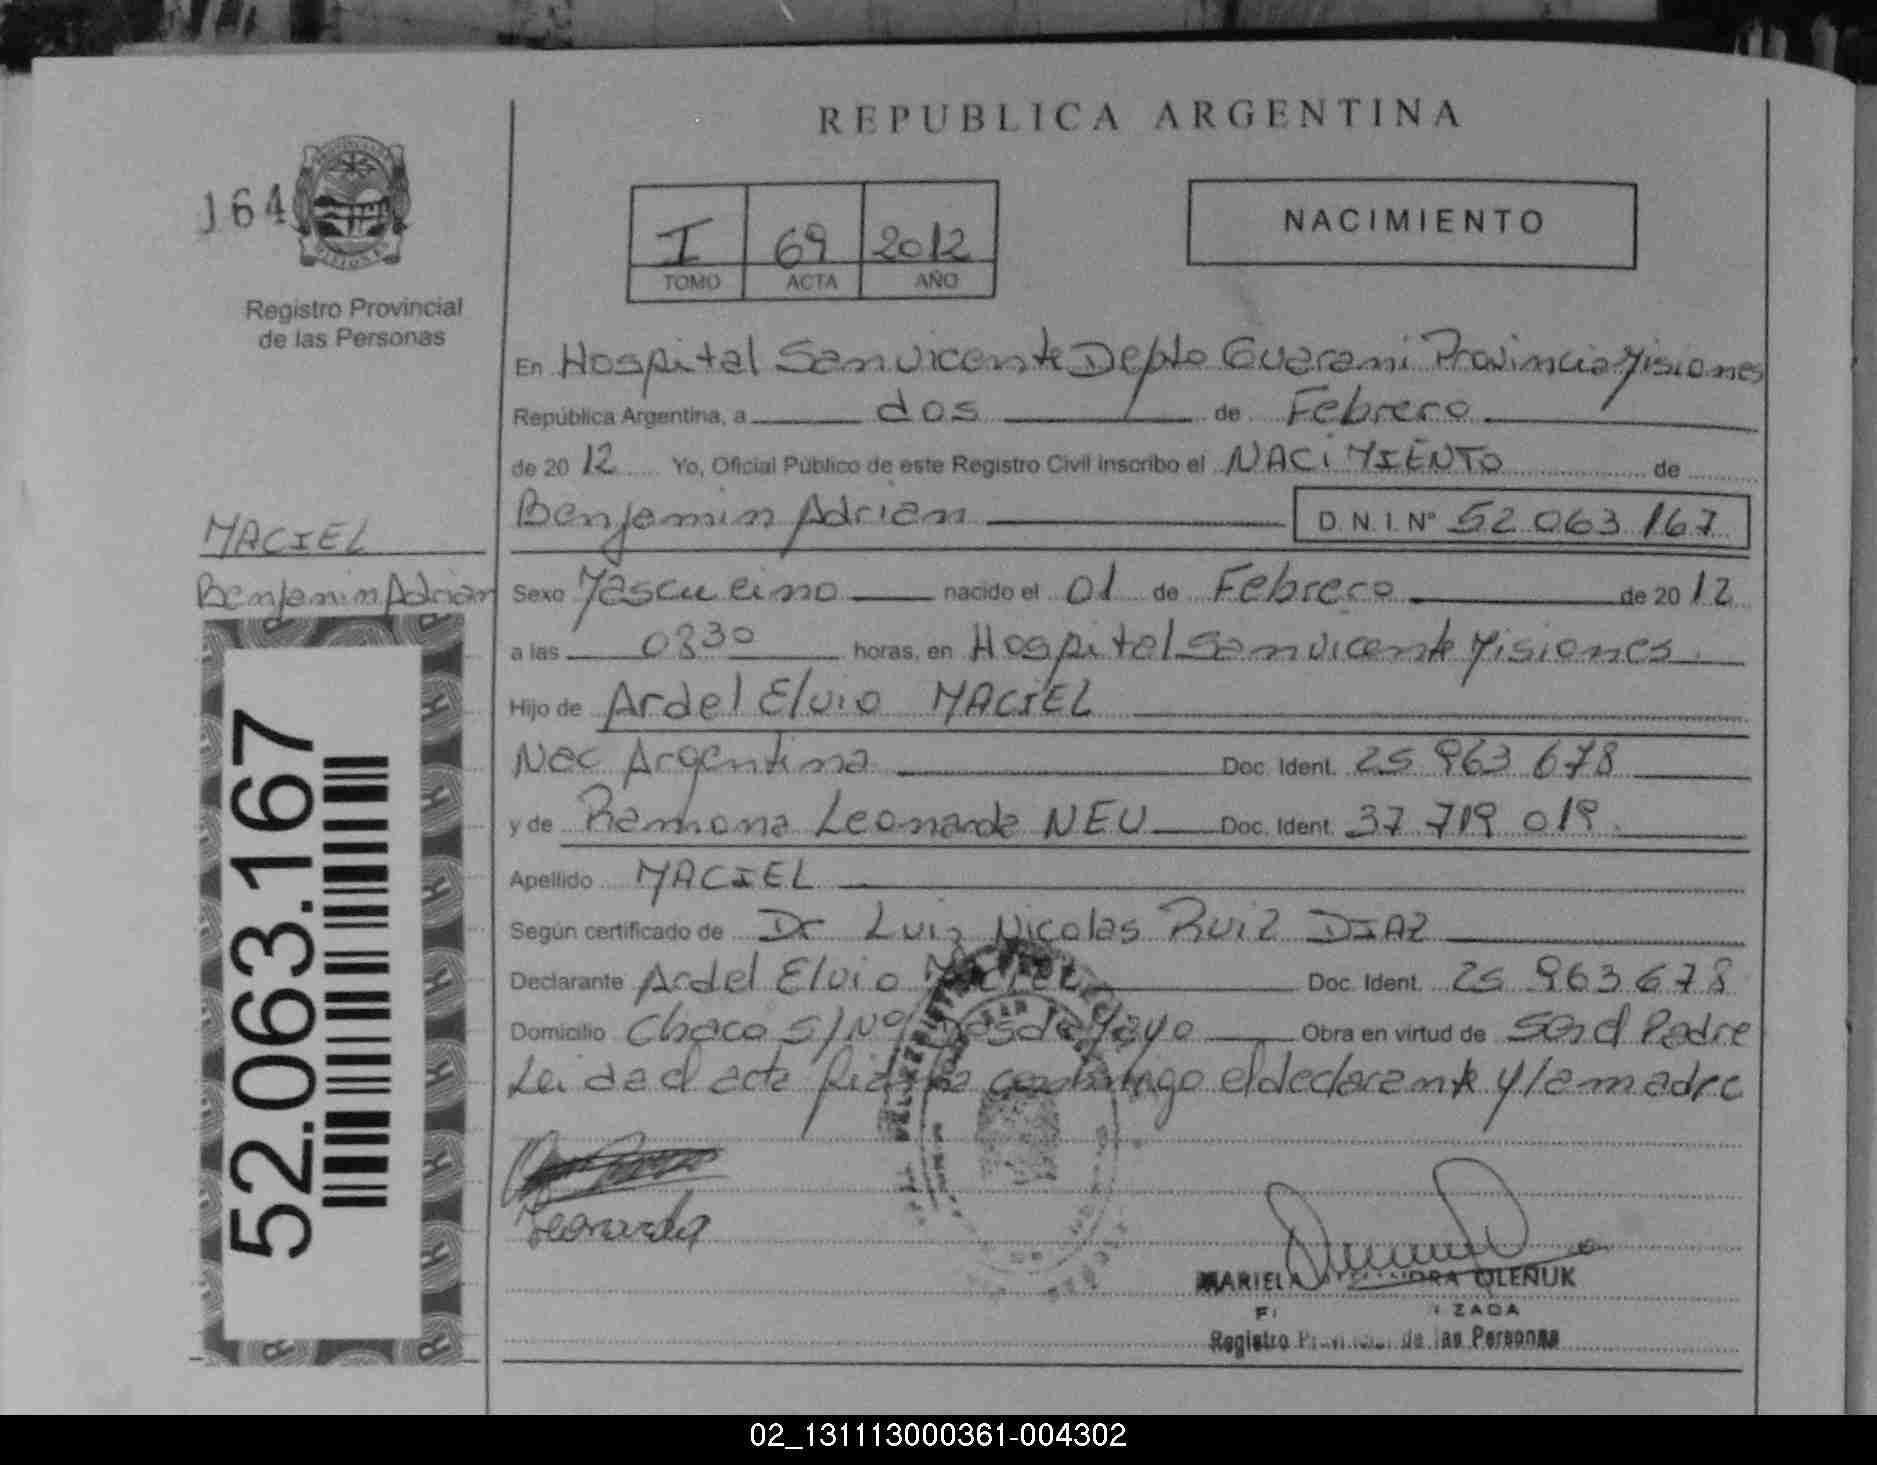 REPUBLICA ARGENTINA
164
I 69 2012
TOMO ACTA AÑO
NACIMIENTO
Registro Provincial
de las Personas
En Hospital San vicente Depto Guarani Provincia Misiones
República Argentina, a dos de Febrero
de 2012 Yo, Oficial Público de este Registro Civil inscribo el NACIMIENTO de
Benjamin Adrian D.N.I. N° 52 063 167
MACIEL
Benjamin Adrian
Sexo Masculino nacido el 01 de Febrero de 2012
a las 0330 horas, en Hospital San vicente Misiones
Hijo de Ardel Elvio MACIEL
Nac Argentina Doc. Ident. 25 963 678
y de Ramona Leonarda NEU Doc. Ident. 37 719 019
Apellido MACIEL
Según certificado de Dr Luiz Nicolas Ruiz DIAZ
Declarante Ardel Elvio MACIEL Doc. Ident. 25 963 678
Domicilio Chaco S/Nº Obra en virtud de Ser el Padre
Leida el acta conmigo el declarante y la madre
Leonarda
52.063.167
MARIELA OLEÑUK
Registro Provincial de las Personas
02_131113000361-004302